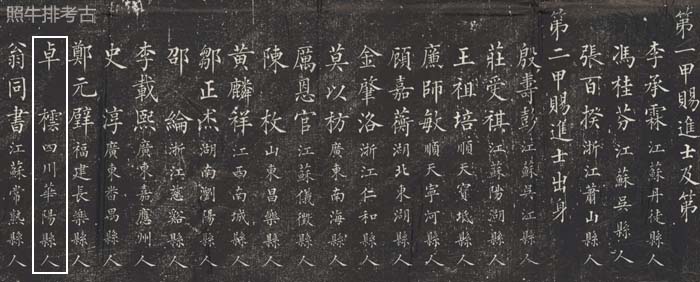 照牛排考古
第一甲賜進士及第
李承霖江蘇丹徒縣人
馮桂芬江蘇吳縣人
張百揆浙江蕭山縣人
第二甲賜進士出身
殷壽彭江蘇吳江縣人
莊受祺江蘇陽湖縣人
王祖培順天寶坻縣人
廉師敏順天寧河縣人
顧嘉蘅湖北東湖縣人
金肇洛浙江仁和縣人
莫以枋廣東南海縣人
厲恩官江蘇儀徵縣人
陳枚山東昌樂縣人
黃麟祥江西南城縣人
鄒正杰湖南瀏陽縣人
邵綸浙江慈谿縣人
李載熙廣東嘉應州人
史淳廣東番禺縣人
鄭元璧福建長樂縣人
卓橒四川華陽縣人
翁同書江蘇常熟縣人